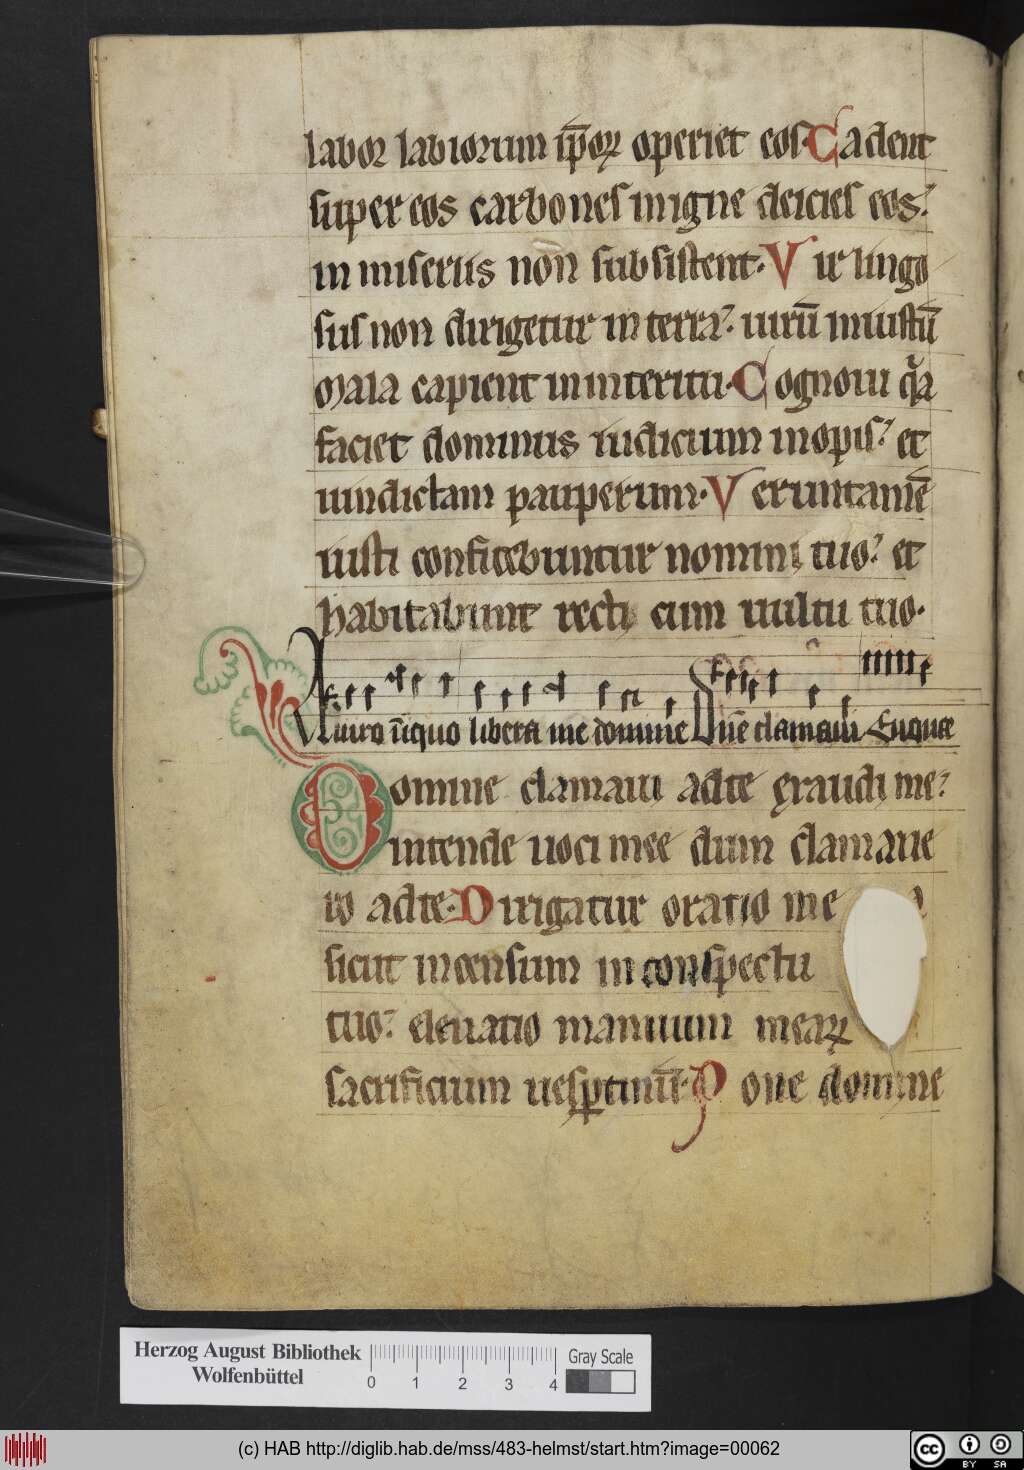 labor labiorum ip̄oꝝ operiet eos. Cadent
super eos carbones in igne deicies eos:
in miseriis non subsistent. Vir lingo
sus non dirigetur in terra: uirū iniustū
mala capient in interitu. Cognoui q̄a
faciet dominus iudicium inopis: et
uindictam pauperum. Veruntamē
iusti confitebuntur nomini tuo: et
habitabunt recti cum uultu tuo.
A uiro īiquo libera me domine Dn̄e clamaui Euouae
Domine clamaui ad te exaudi me:
intende uoci mee dum clamaue
ro ad te. Dirigatur oratio me a
sicut incensum in conspectu
tuo: eleuatio manuum meaꝝ
sacrificium uesꝑtinū. Pone domine
Herzog August Bibliothek
Wolfenbüttel
0 1 2 3 4
Gray Scale
(c) HAB http://diglib.hab.de/mss/483-helmst/start.htm?image=00062
cc BY SA